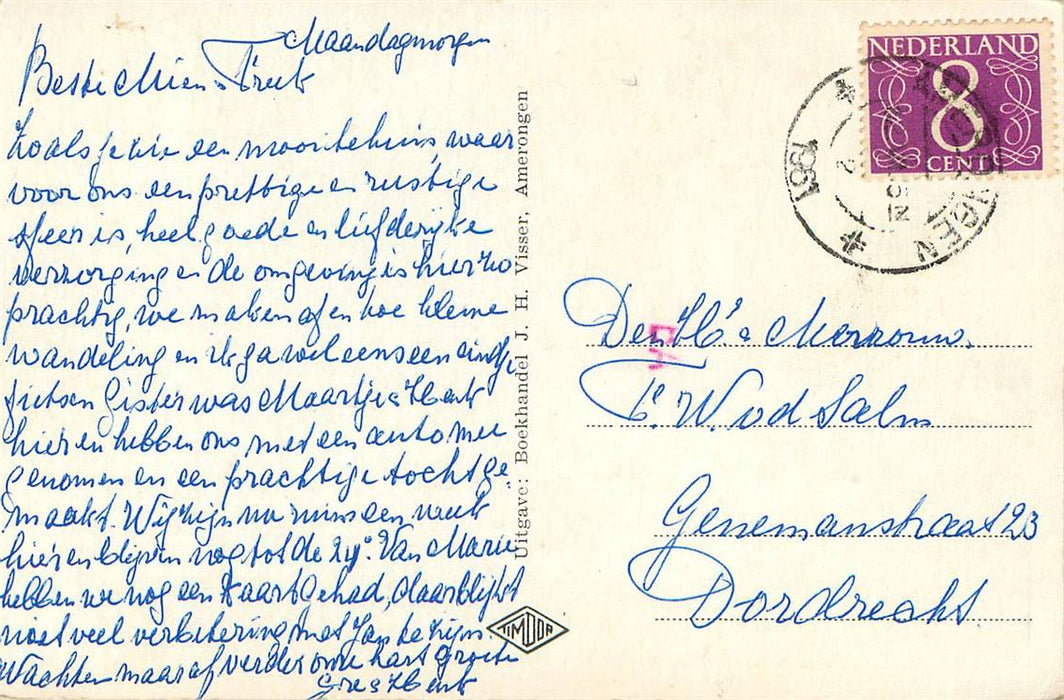 Maandagmorgen
Beste Mien & Freek
Zoals je zie een mooi tehuis, waar
voor ons een prettige en rustige
sfeer is, heel goede en liefderijke
verzorging en de omgeving is hier zo
prachtig, we maken af en toe kleine
wandeling en ik ga wel eens een eindje
fietsen Gister was Maartje & Henk
hier en hebben ons met een auto mee
genomen en een prachtige tocht ge-
maakt. Wij zijn nu ruim een week
hier en blijven nog tot de 24e. Van Marie
hebben we nog een kaart gehad, daar blijkt
niet veel verbetering met Jan te zijn
Wachten maar af verder onze hart. groete
Gre & Henk
Uitgave: Boekhandel J. H. Visser, Amerongen
TIMDOR
NEDERLAND
8
CENT
1961
Den H. & Merrouw.
F. W. vd Salm
Genemanstraat 23
Dordrecht